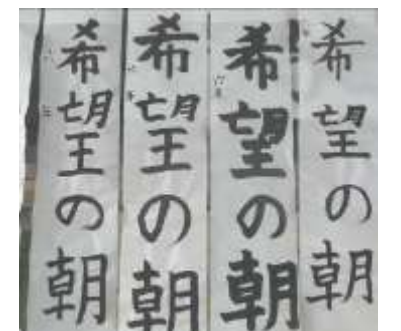 希望の朝
希望の朝
希望の朝
希望の朝